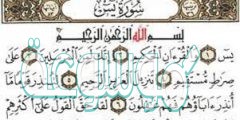 سورة يس
بسم الله الرحمن الرحيم
يس ۝١ والقرءان الحكيم ۝٢ إنك لمن المرسلين ۝٣ على
صراط مستقيم ۝٤ تنزيل العزيز الرحيم ۝٥ لتنذر قوما ما
أنذر ءاباؤهم فهم غافلون ۝٦ لقد حق القول على أكثرهم